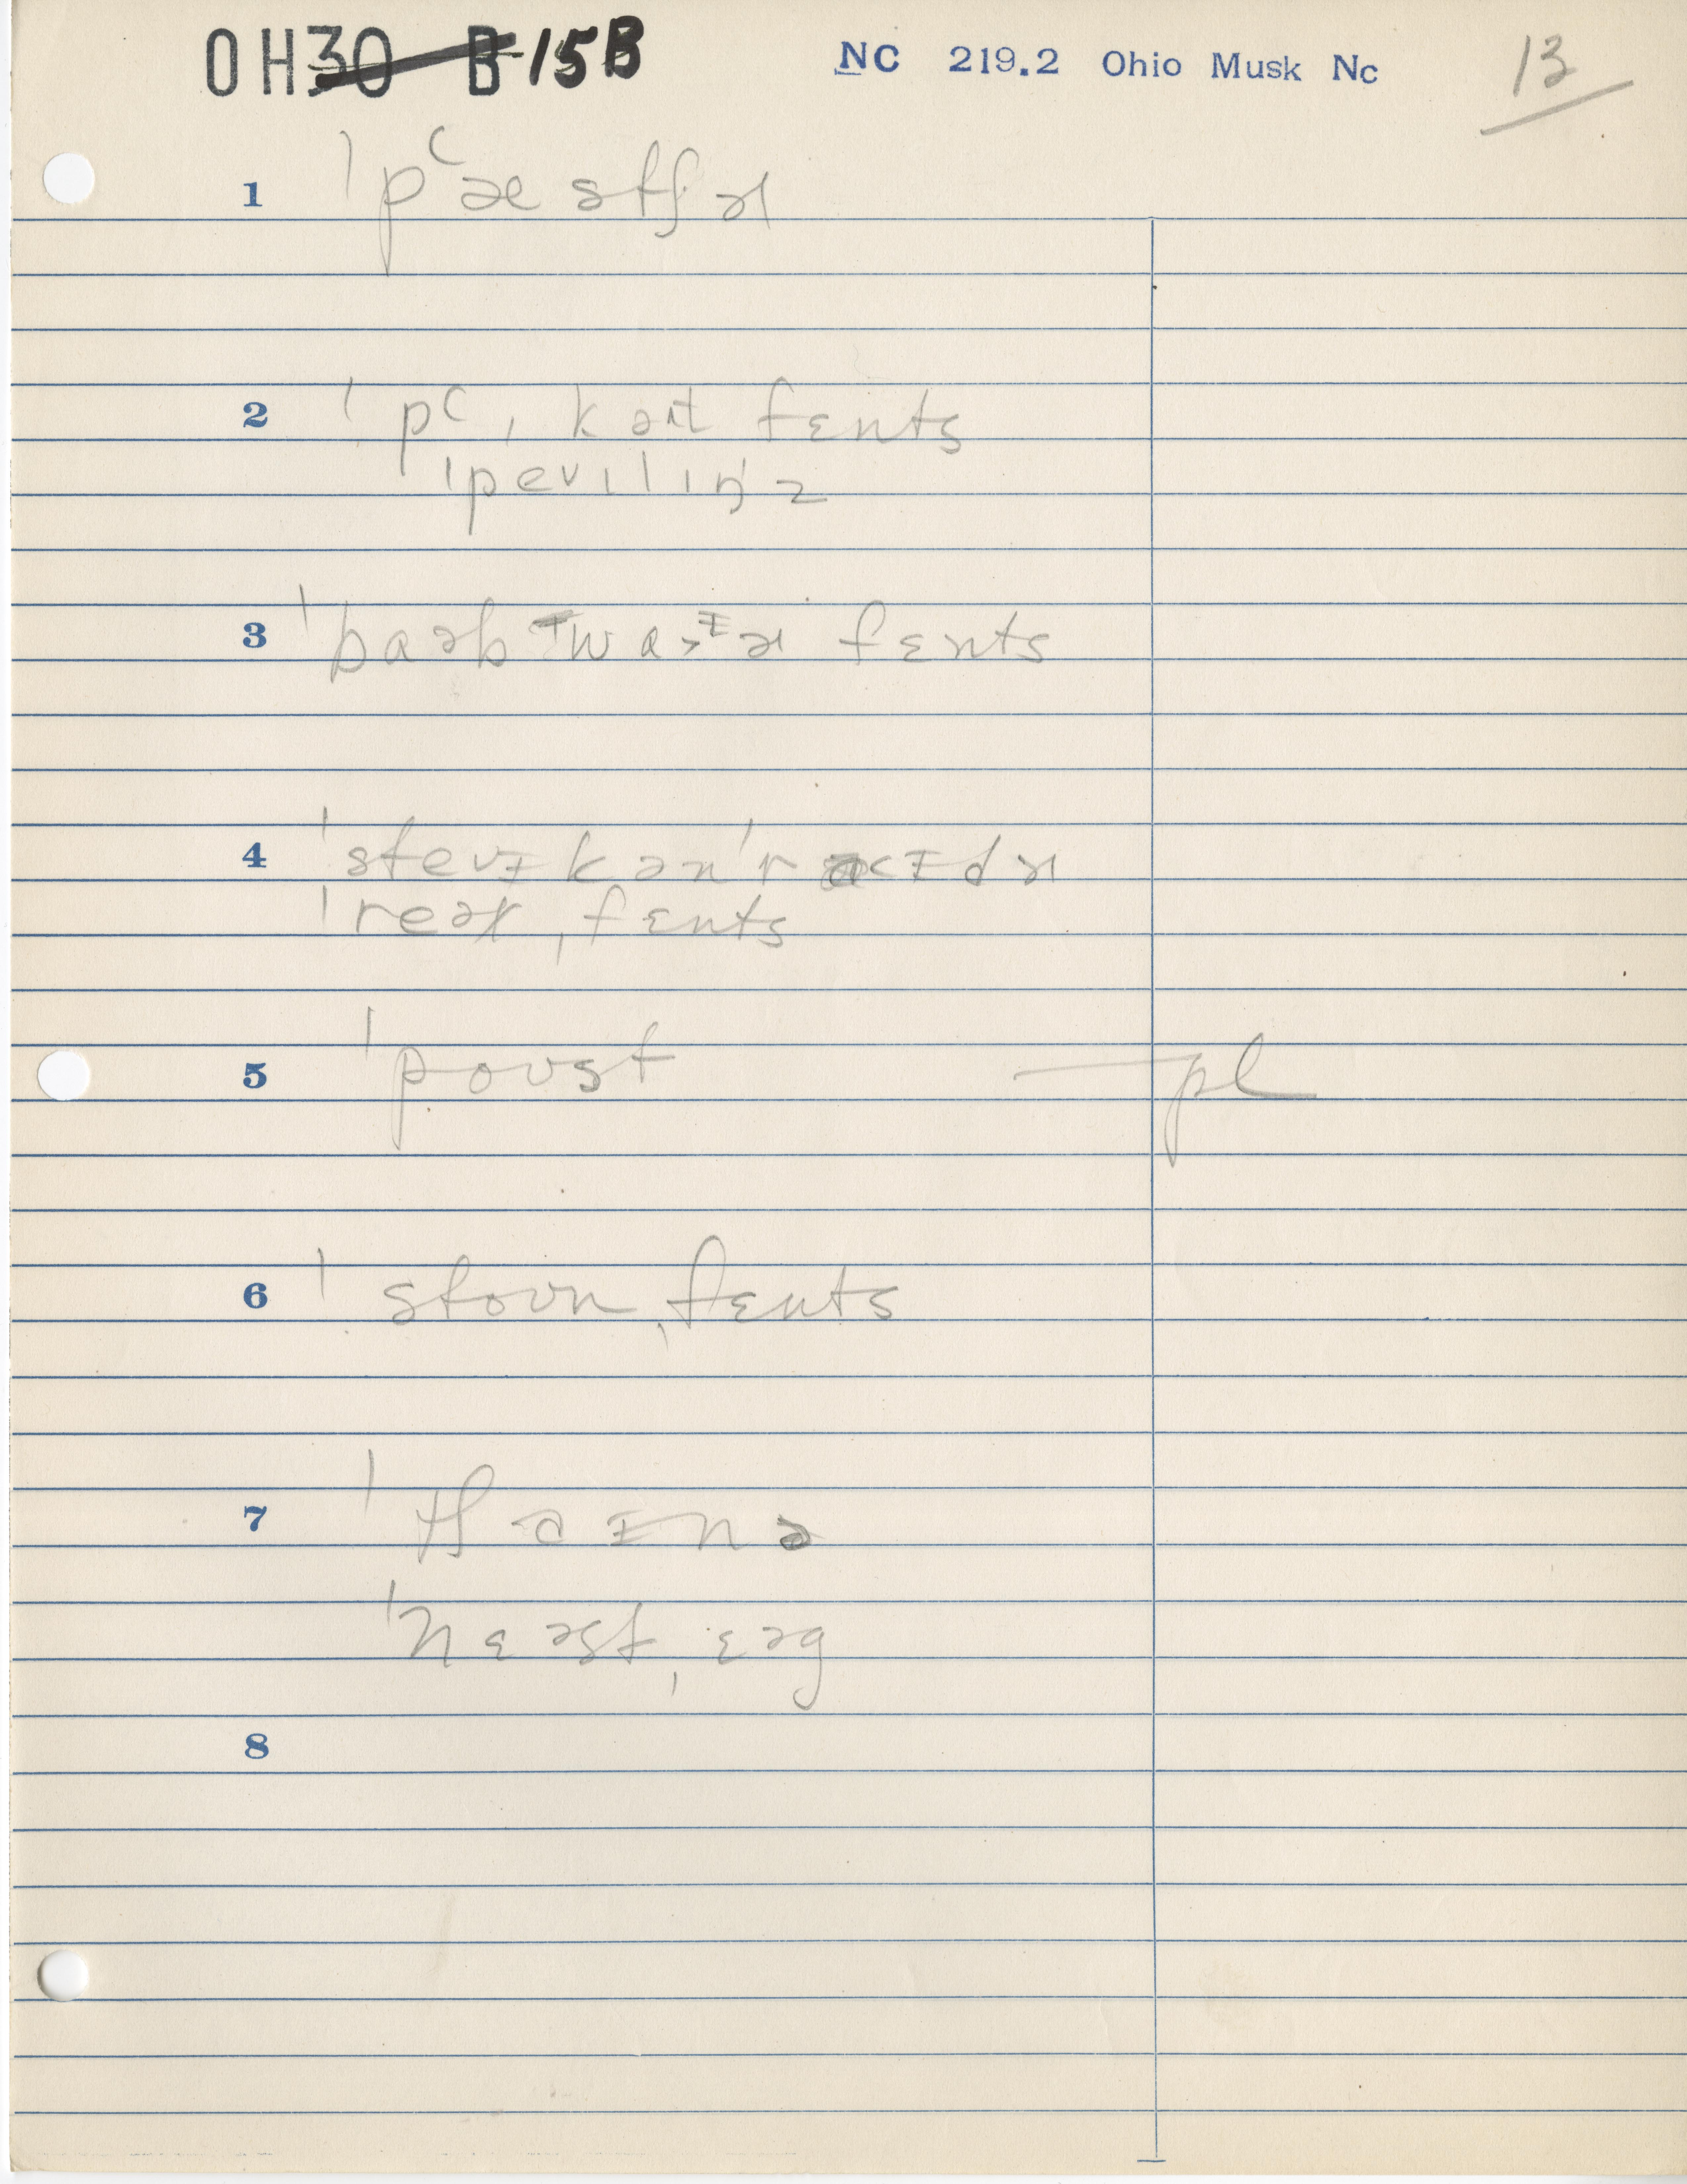 OH30 B 15B NC 219.2 Ohio Musk Nc 13
1 ˈpʻæstʃɚ
2 ˈpʻɪkɚt fɛnts
ˈpevɪlɪŋz
3 ˈbɑɚb wɑɪɚ fɛnts
4 ˈstevᵻkənˈrɑᵻdɚ
ˈreəl ˌfɛnts
5 ˈpoʊst — pl
6 ˈstoʊn ˌfɛnts
7 ˈtʃɑᵻnə
ˈnɛəst ˌɛəg
8